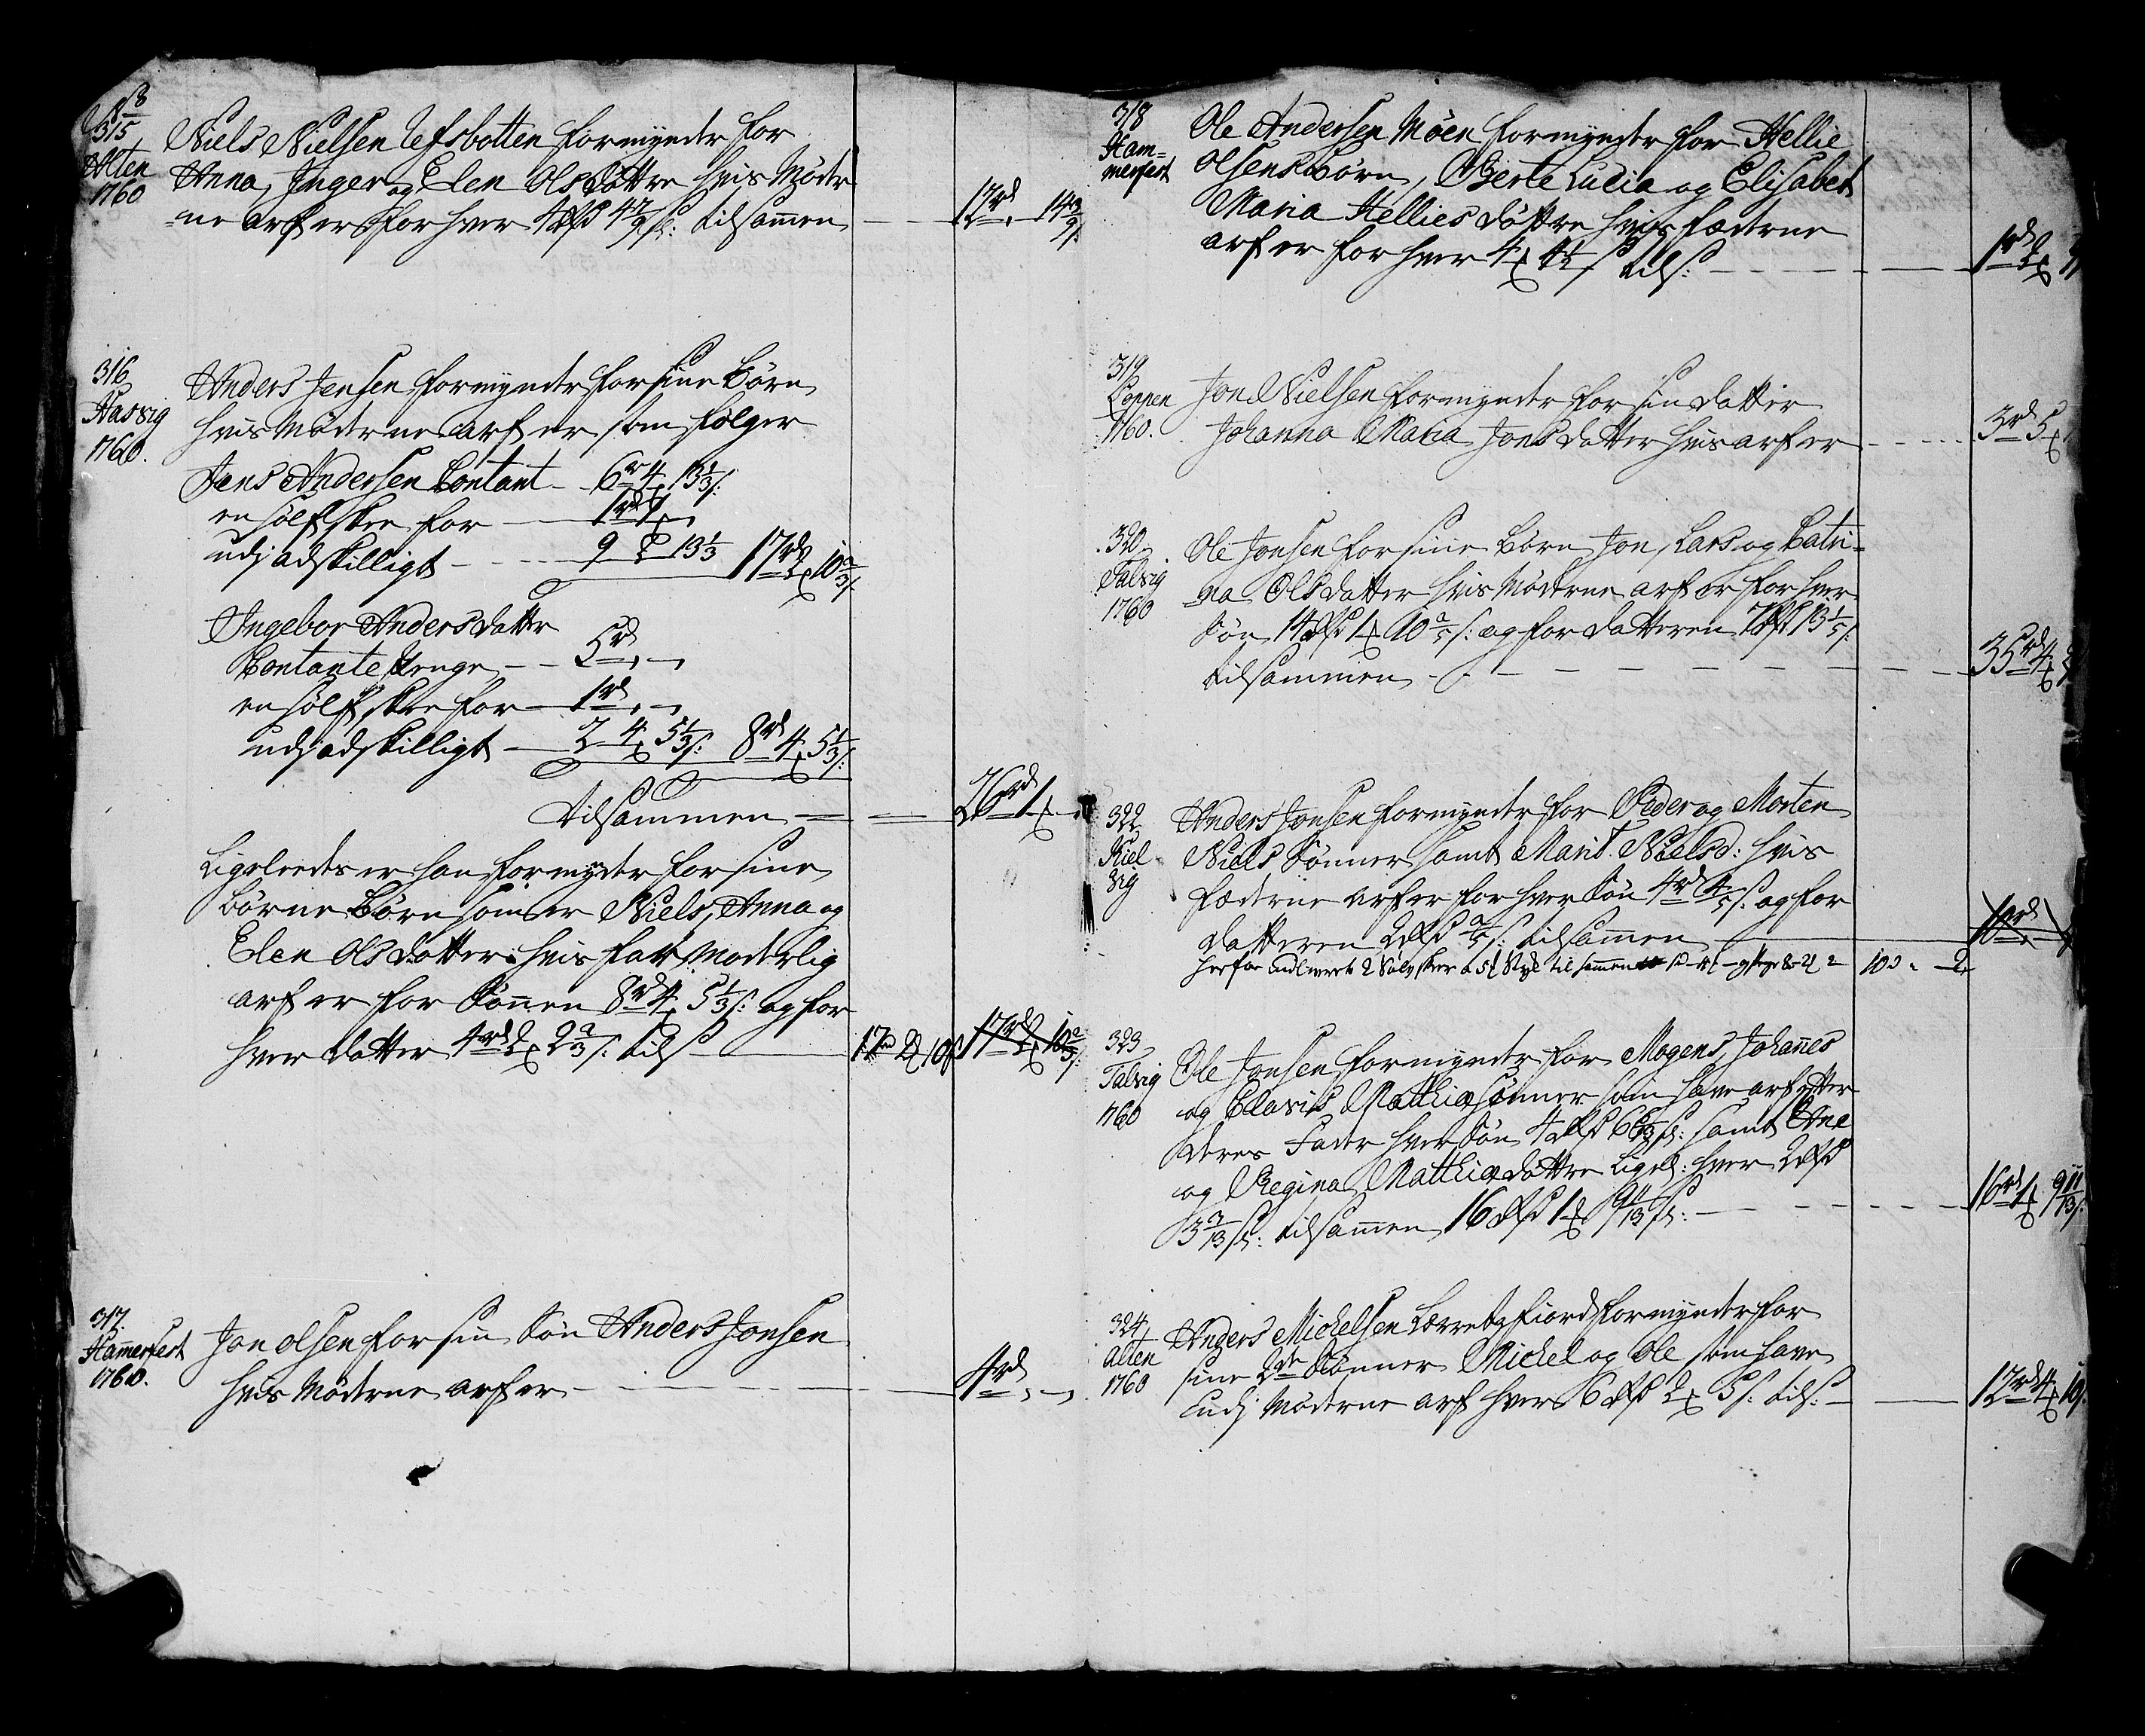 315
Alten
1760
Niels Nielsen Refsbotten formynder for
Anna, Inger og Elen Olsdøttre hvis Møder
ne arf er for hver 4 Rd 4 7/9 s: tilsamen
12rd, 14 3/9 s.
316
Hasvig
1760.
Anders Jensen formynder for sine Børn
hvis Møderne arf er som følger
Jens Andersen Contant - 6r 4 13 1/3 s:
en sølf skee for
udj adskilligt 9 13 1/3 17rd 2 10 2/3 s.
Ingebor Andersdatter
Contante Penge - 5rd, -,
en sølf skee for 1rd, -,
udj adskilligt 2 4 5 1/3 s: 8rd 4 5 1/3 s:
tilsammen 26rd 1
Ligeledes er han formynder for sine
Børne Børn som er Niels, Anna og
Elen Olsdatter hvis Moderlig
arf er for Sønnen 8rd 4 5 1/3 s: og for
hver datter 4rd 2 2 2/3 s. tils
17 2 10 17rd 2 10 2/3 s.
317.
Hamerfest
1760.
Jon Olsen for sin Søn Anders Jonsen
hvis Møderne arf er
4rd, -,
318
Ham=
merfest
Ole Andersen Møen formynder for Hellie
Olsens børn, Berte Lucia og Elisabet
Maria Hellies døttre hvis fæderne
arf er for hver 4 4 1/2 s tils:
1rd 2
319
Loppen
1760.
Jon Nielsen formynder for sin datter
Johanna Maria Jonsdatter hvis arf er
3rd 5
320
Talvig
1760
Ole Jonsen for sine Børn Jon, Lars og Catri=
na Olsdatter hvis Møderne arf er for hver
Søn 14 Rd 1 10 2/5 s: og for datteren 7 Rd 13 1/5 s:
tilsammen
35rd 4
322
Kiel
vig
Anders Jonsen formynder for Peder og Morten
Niels Sønner samt Marit Nielsd: hvis
fæderne arf er for hver Søn 4rd 4/5 s: og for
datteren 2 Rd 2/5 s: tilsamen
10rd
herfor 2 Sølv skeer a 5 Styk til sammen
10 2
323
Talvig
1760
Ole Jonsen formynder for Mogens, Johanes
og Clavis Mathiæsønner som have arf efter
deres Fader hver Søn 4 Rd 6 6/13 s: samt Ane
og Regina Mathiædøttre ligel: hver 2 Rd
3 3/13 s: tilsamen 16 Rd 1 9 11/13 s:
16rd 1 9 11/13 s:
324
Alten
1760
Anders Michelsen Lerretsfiord formynder for
sine 2de Sønner Michel og Ole som have
udj Møderne arf hver 6 Rd 2 5 s: tils:
12rd 4 10 s.